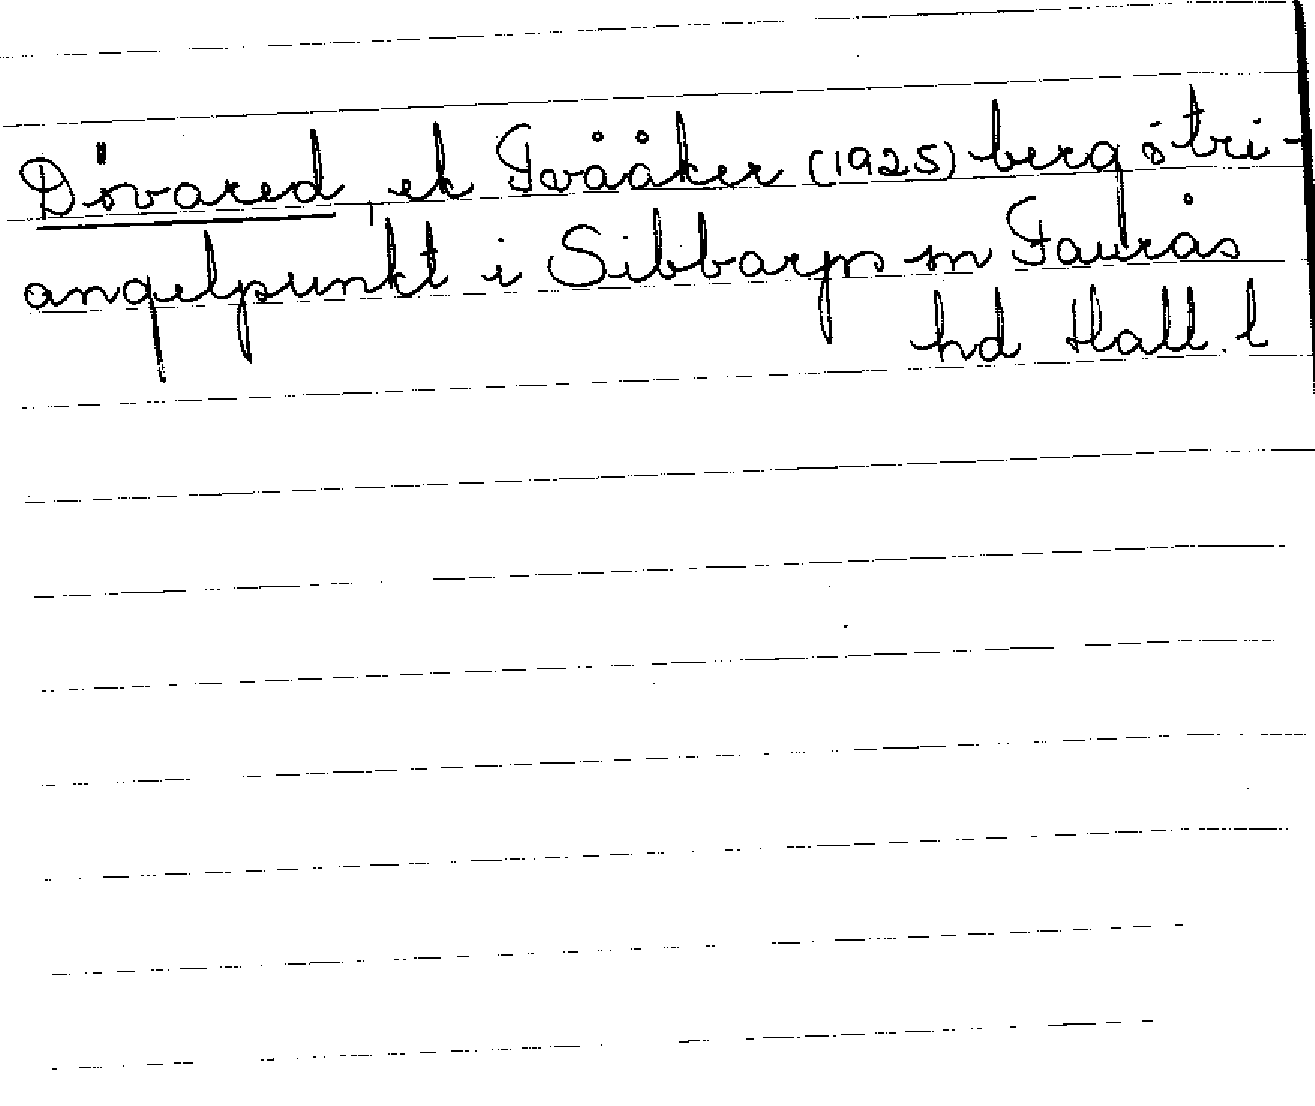 Dövared, ek Tvååker (1925) berg o tri-
angelpunkt i Sibbarps sn Faurås
hd Hall. l